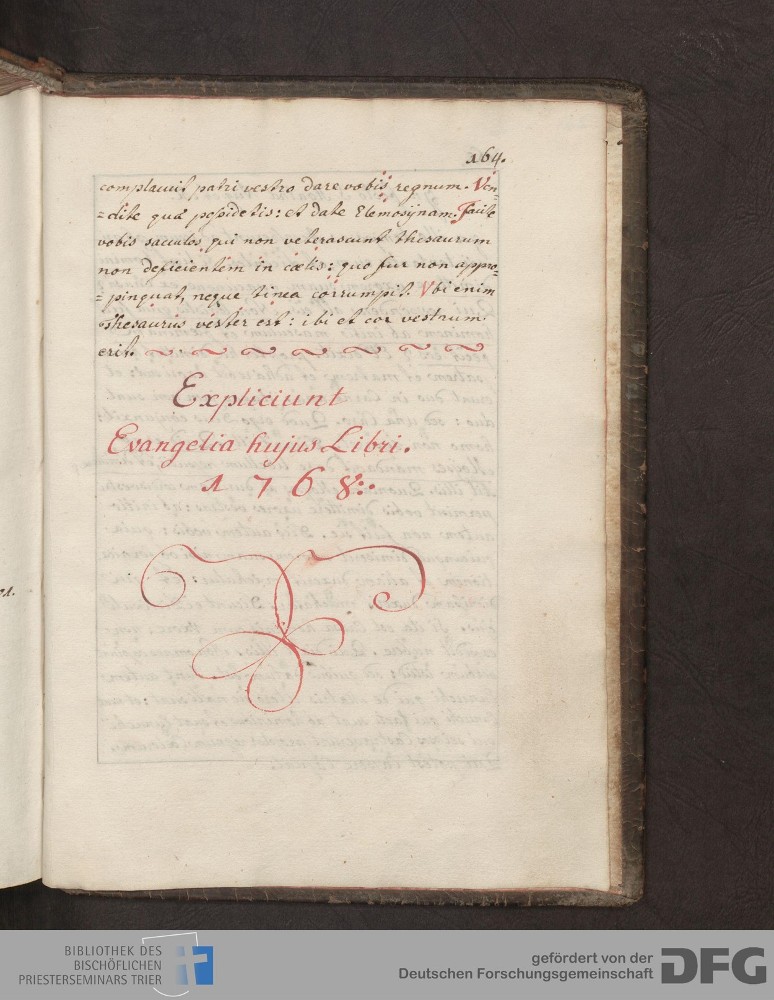 164.
complacuit patri vestro dare vobis regnum. Ven=
=dite quæ possidetis: et date Elemosÿnam. Facite
vobis sacculos, qui non veterascunt thesaurum
non deficientem in cœlis: quo fur non appro=
=pinquat, neque tinea corrumpit. Vbi enim
Thesaurus vester est: ibi et cor vestrum
erit.
Expliciunt
Evangelia hujus Libri.
1768:.
BIBLIOTHEK DES
BISCHÖFLICHEN
PRIESTERSEMINARS TRIER
gefördert von der
Deutschen Forschungsgemeinschaft
DFG